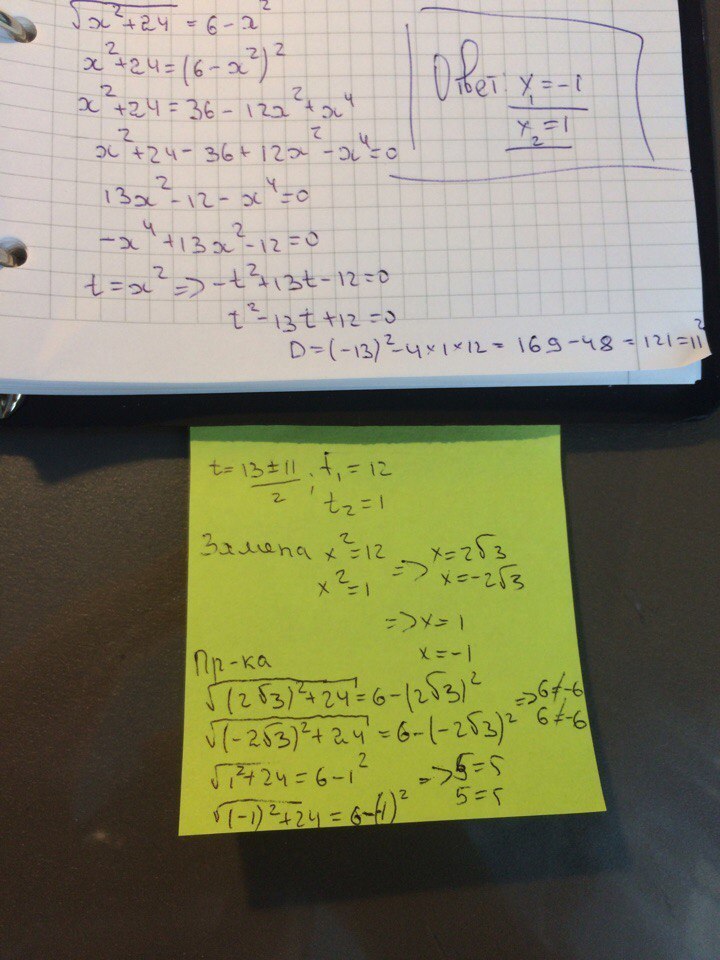 √x²+24 = 6-x²
x²+24=(6-x²)²
x²+24=36-12x²+x⁴
x²+24-36+12x²-x⁴=0
13x²-12-x⁴=0
-x⁴+13x²-12=0
t=x² => -t²+13t-12=0
t²-13t+12=0
D=(-13)²-4×1×12=169-48=121=11²
Ответ: x₁=-1
x₂=1
t=13±11/2; t₁=12
t₂=1
Замена x²=12 => x=2√3
x²=1 x=-2√3
=> x=1
x=-1
Пр-ка
√(2√3)²+24=6-(2√3)² => 6≠-6
√(-2√3)²+24=6-(-2√3)² 6≠-6
√1²+24=6-1² => 5=5
√(-1)²+24=6-(-1)² 5=5